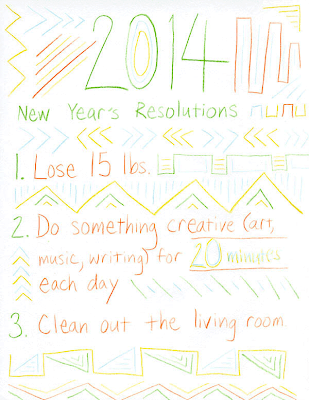 2014
New Year's Resolutions
1. Lose 15 lbs.
2. Do something creative (art,
music, writing) for 20 minutes
each day
3. Clean out the living room